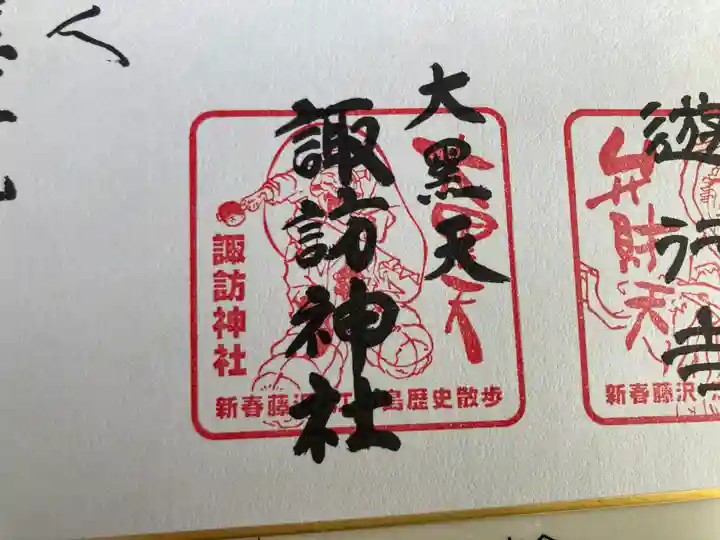 遊行寺
弁財天
新春藤沢
大黒天
諏訪神社
大黒天
諏訪神社
新春藤沢 江 島歴史散歩
人